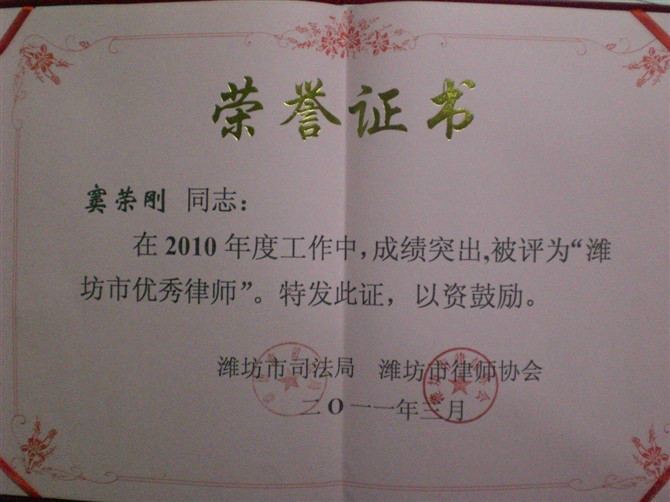 荣誉证书
窦荣刚 同志：
在2010年度工作中,成绩突出,被评为“潍
坊市优秀律师”。特发此证，以资鼓励。
潍坊市司法局 潍坊市律师协会
二O一一年三月